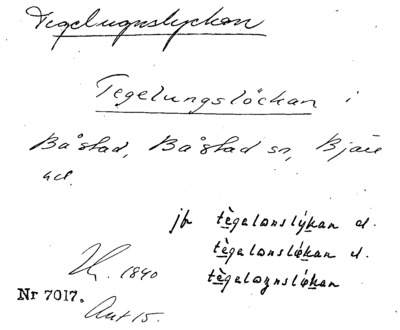 Tegelugnslyckan
Tegelungslöckan i
Båstad, Båstad sn, Bjäre
hd.
jfr tègelonslýkan el.
tègelonslǿkan el.
tègeloŋnslǿkan
1840
Nr 7017.
Ant 15.